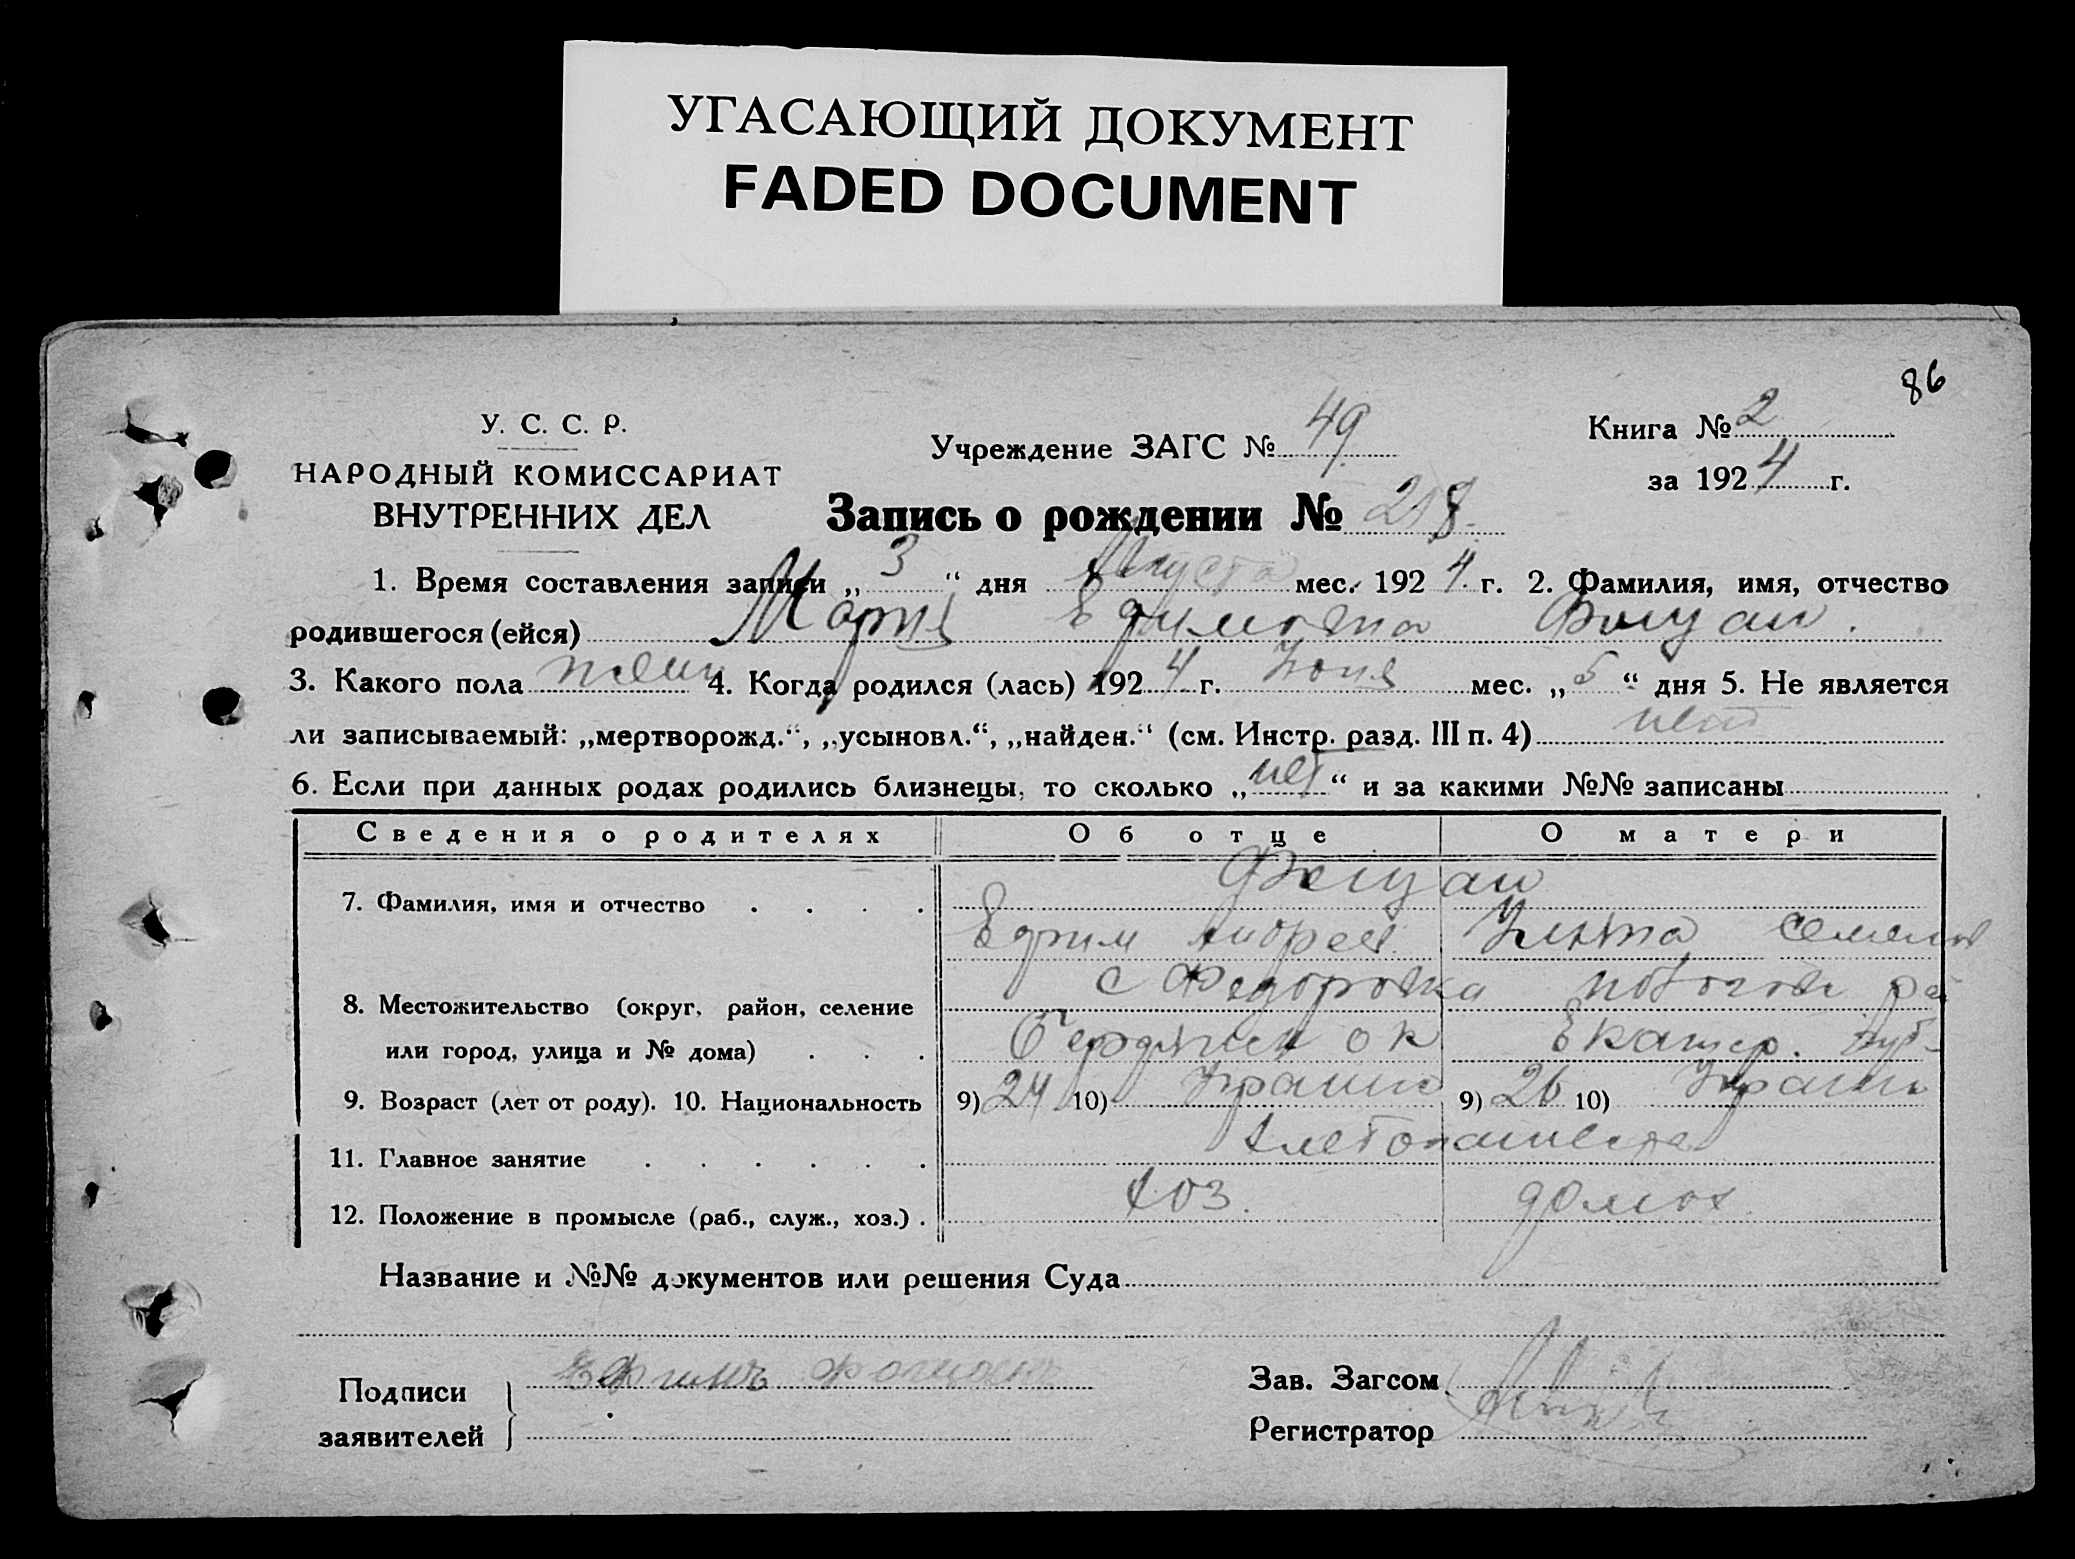 УГАСАЮЩИЙ ДОКУМЕНТ
FADED DOCUMENT
86
У. С. С. Р.
НАРОДНЫЙ КОМИССАРИАТ
ВНУТРЕННИХ ДЕЛ
Учреждение ЗАГС № 49
Книга № 2
за 1924 г.
Запись о рождении № 218.
1. Время составления записи „3“ дня Августа мес. 1924 г. 2. Фамилия, имя, отчество
родившегося (ейся) Мария
3. Какого пола жен 4. Когда родился (лась) 1924 г. Июня мес. „5“ дня 5. Не является
ли записываемый: „мертворожд.“, „усыновл.“, „найден.“ (см. Инстр. разд. III п. 4) нет
6. Если при данных родах родились близнецы, то сколько „нет“ и за какими №№ записаны
Сведения о родителях Об отце О матери
7. Фамилия, имя и отчество
Ефим Андрее.
8. Местожительство (округ, район, селение с Федоровка
или город, улица и № дома) ок Екатер. губ.
9. Возраст (лет от роду). 10. Национальность 9) 24 10) 9) 26 10)
11. Главное занятие Хлебопашество
12. Положение в промысле (раб., служ., хоз.) хоз. домох
Название и №№ документов или решения Суда
Подписи
заявителей
Зав. Загсом
Регистратор